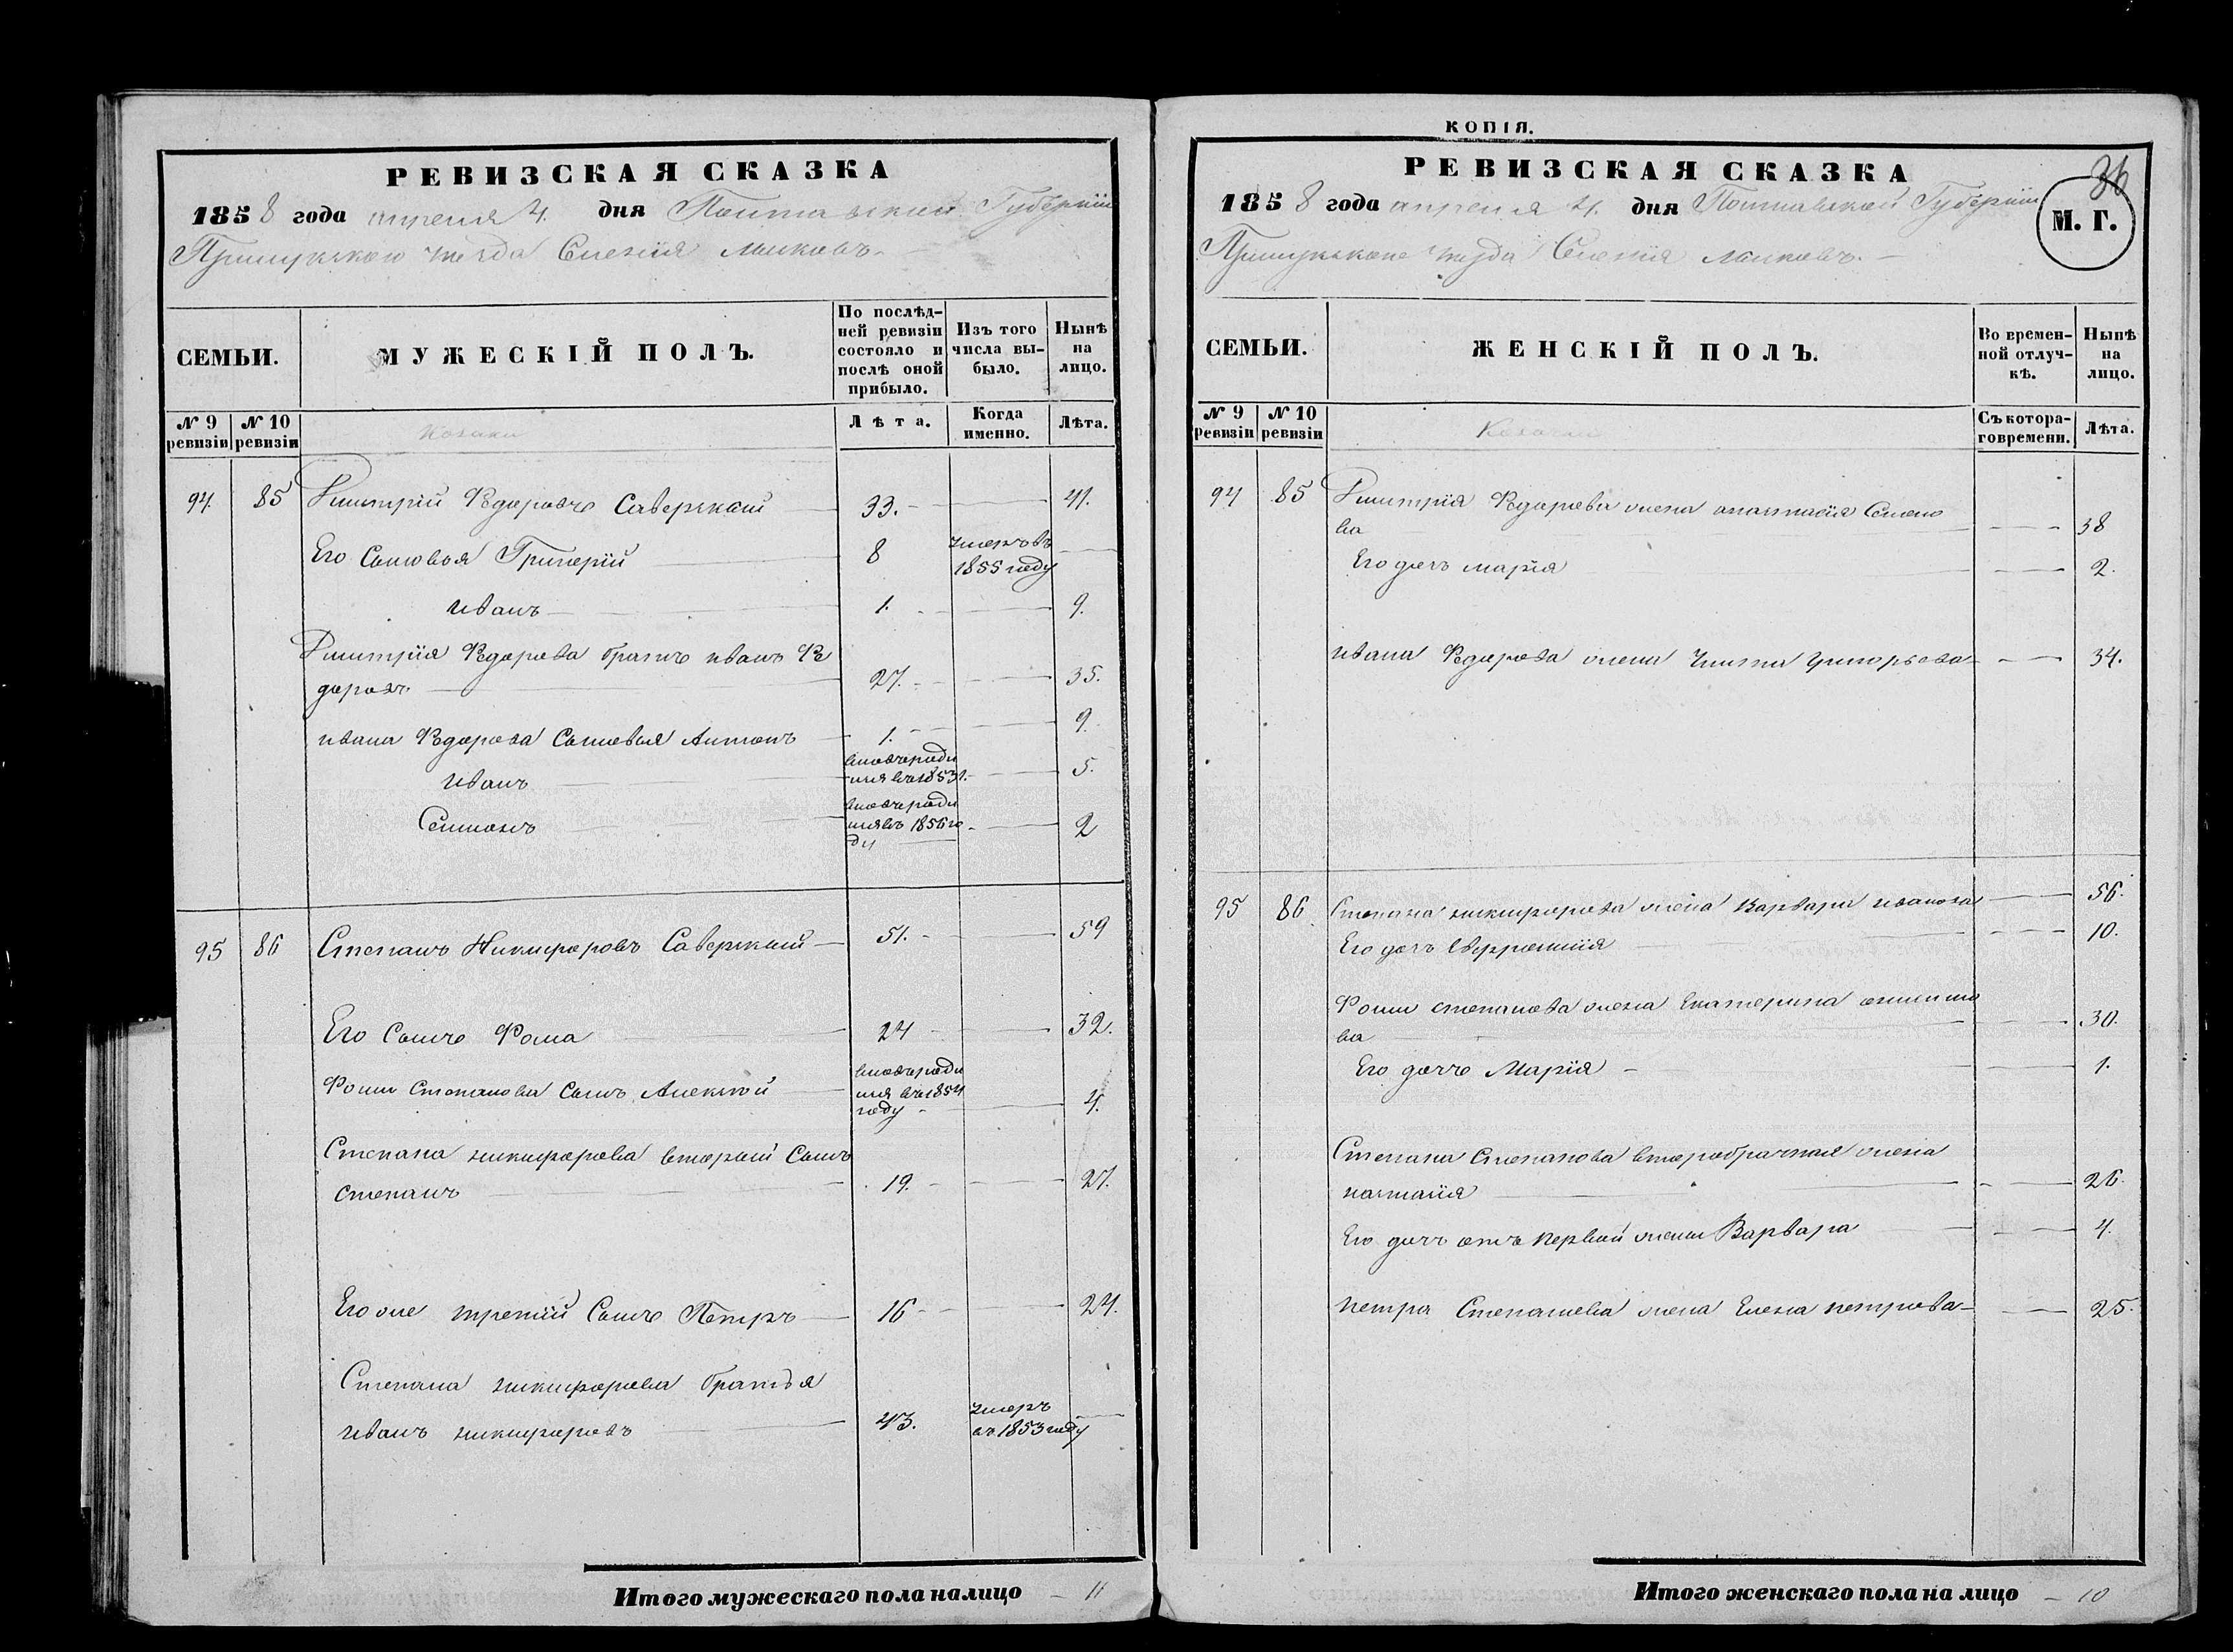 РЕВИЗСКАЯ СКАЗКА
1858 года апреля 4. дня Полтавской Губернiи
Прилукского уезда Слезкiя
СЕМЬИ.
МУЖЕСКІЙ ПОЛЪ.
По послѣд-
ней ревизіи
состояло и
послѣ оной
прибыло.
Изъ того
числа вы-
было.
Нынѣ
на
лицо.
№ 9
ревизіи
№ 10
ревизіи
Козаки
Лѣта.
Когда
именно.
Лѣта.
94. 85 Дмитрій Федоровъ Саверский 33. 41.
Его Сыновья Григорій 8 умеръ въ
1855 году
Иванъ 1. 9.
Дмитрія Федорова братъ иванъ Фе
доровъ 27. 35.
ивана Федорова Сыновья Антонъ 1. 9.
Иванъ вновь роди
лся въ 1853 г. 5.
Семионъ вновь роди
лся въ 1856 го
ду 2
95 86 Степанъ Никифоровъ Саверский 51. 59
Его Сынъ Фома 24 32.
Фомы Степанова Сынъ Алексей вновь роди
лся въ 1854
году 4.
Степана никифорова вторый Сынъ
степанъ 19. 27.
Его же третий Сынъ Петръ 16 24.
Степана никифорова братья
иванъ никифоровъ 43. умеръ
въ 1853 году
Итого мужескаго пола налицо 11
КОПІЯ.
РЕВИЗСКАЯ СКАЗКА
36
М. Г.
1858 года апреля 4. дня Полтавской Губернiи
Прилукского уезда Слезкiя
СЕМЬИ.
ЖЕНСКІЙ ПОЛЪ.
Во времен-
ной отлуч-
кѣ.
Нынѣ
на
лицо.
№ 9
ревизіи
№ 10
ревизіи
Козачки
Съ котора-
го времени.
Лѣта.
94 85 Дмитрія Федорова жена анастасія Семено
ва 38
Его дочь марія 2.
ивана Федорова жена Улита григорьева 34.
95 86 Степана никифорова жена Варвара иванова 56.
Его дочь Евфросинія 10.
Фомы степанова жена Екатерина
ва 30.
Его дочь Марія 1.
Степана Степанова второбрачная жена
настасія 26.
Его дочь отъ первой жены Варвара 4.
петра Степанова жена Елена петрова 25.
Итого женскаго пола на лицо 10